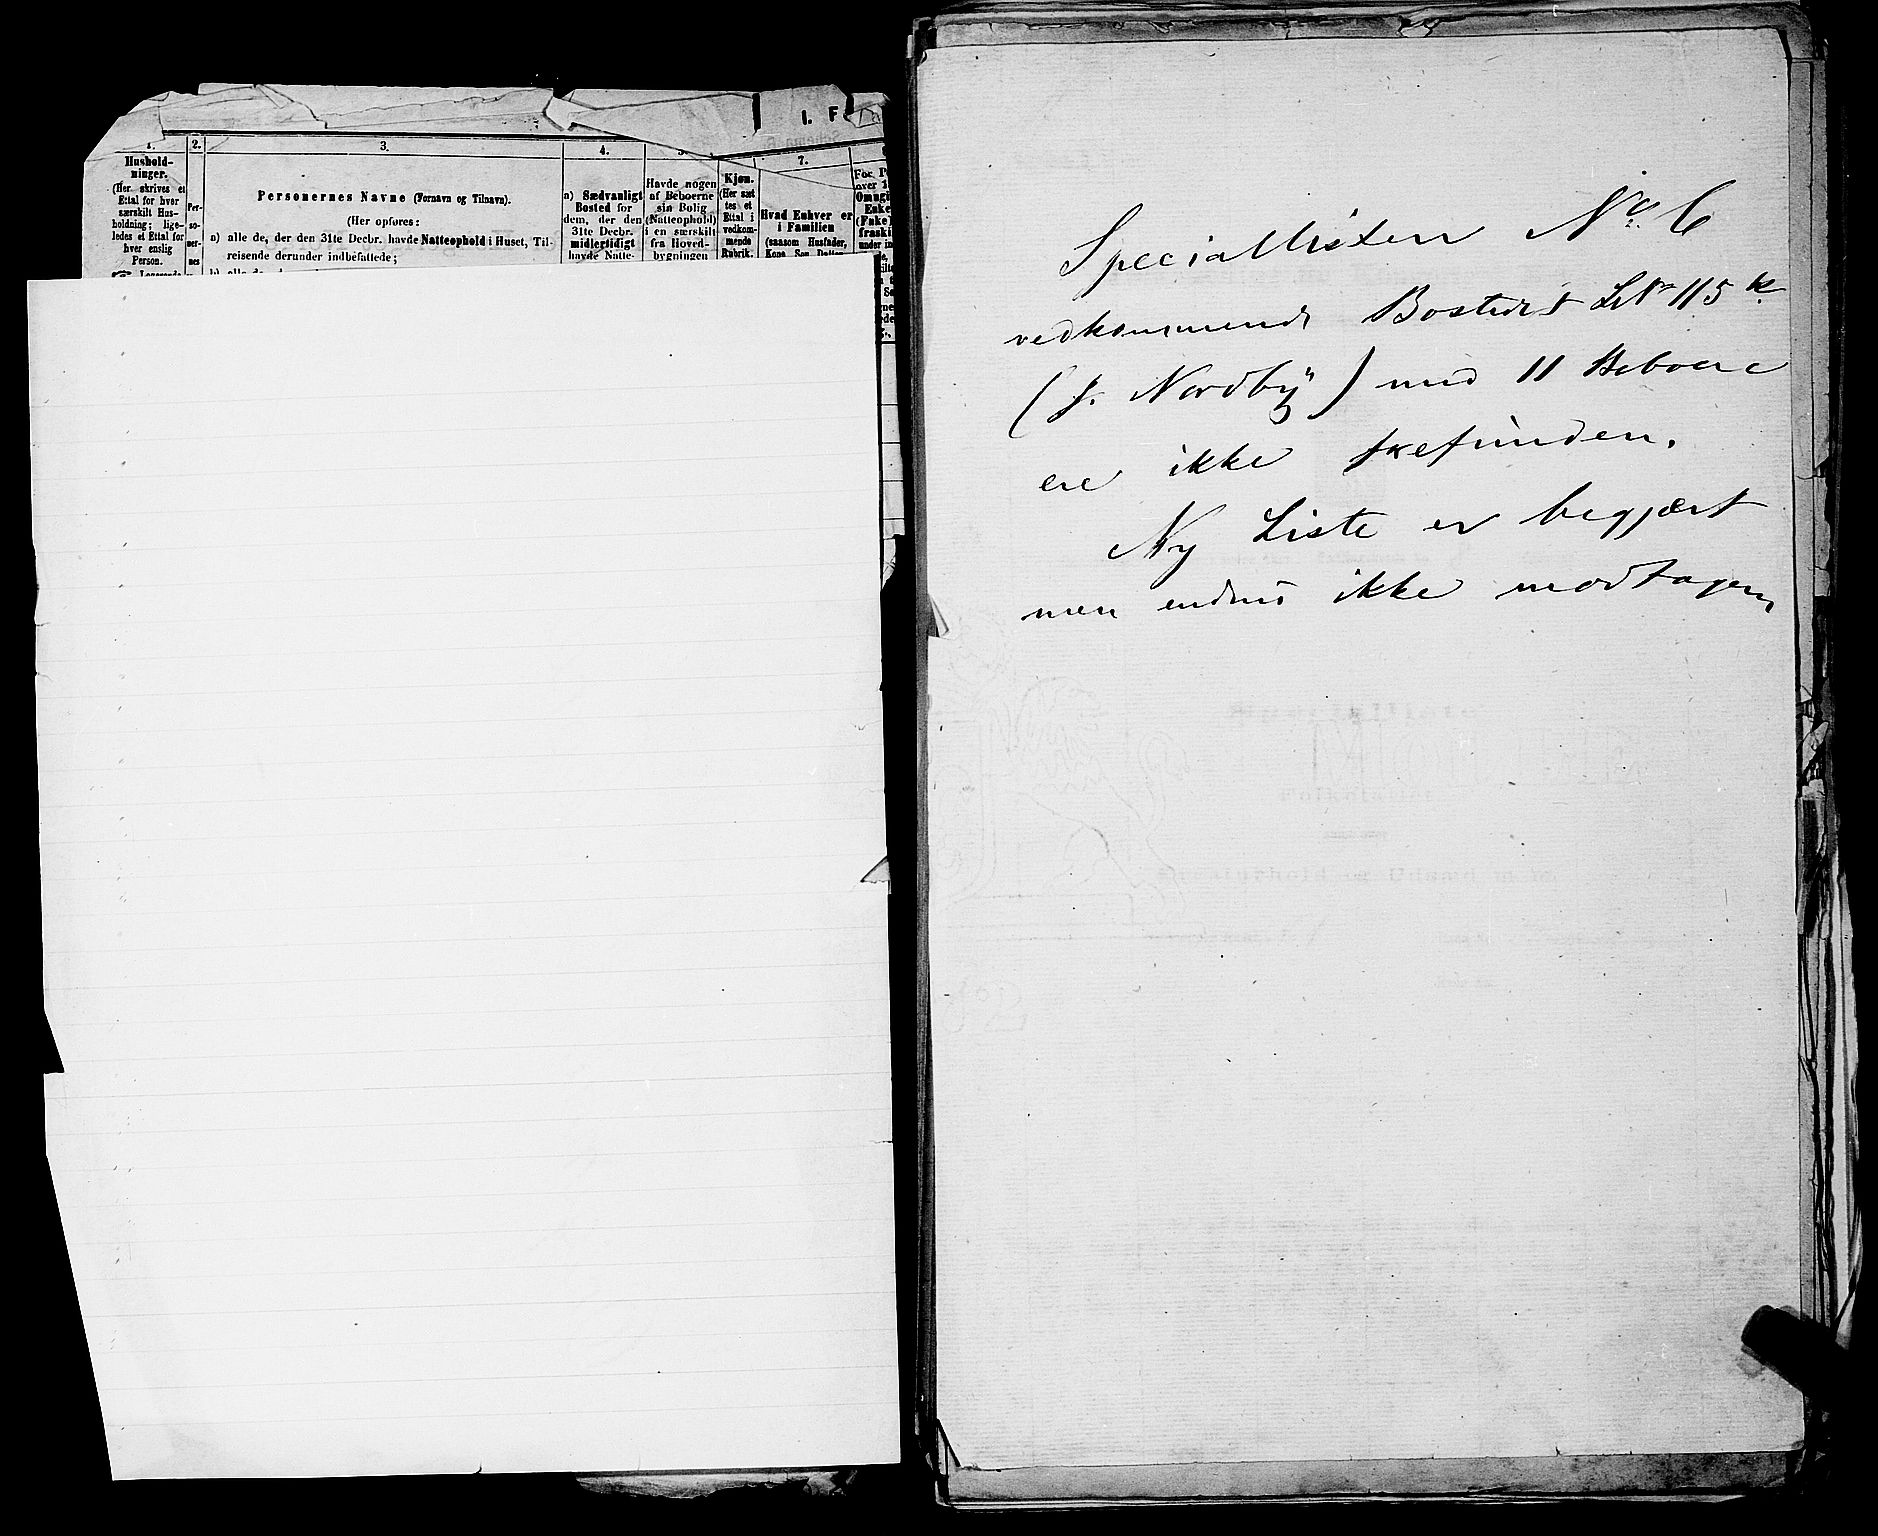 1. F
1.
Hushold-
ninger.
(Her skrives et
Ettal for hver
særskilt Hus-
holdning; lige-
ledes et Ettal for
hver enslig
Person.
2.
Per-
so-
ner-
nes
3.
Personernes Navne (Fornavn og Tilnavn).
(Her opføres:
a) alle de, der den 31te Decbr. havde Natteophold i Huset, Til-
reisende derunder indbefattede;
4.
a) Sædvanligt
Bosted for
dem, der den
31te Decbr.
midlertidigt
havde Natte-
5.
Havde nogen
af Beboerne
sin Bolig
(Natteophold)
i en særskilt
fra Hoved-
bygningen
Kjøn.
(Her sæt
tes et
Ettal i
vedkom-
mende
Rubrik.
7.
Hvad Enhver er
i Familien
(saasom Husfader,
Kone, Søn, Datter,
Speciallisten No. 6
vedkommende Bostedet LNo 115 k
(J. Nordby) med 11 Beboere
ere ikke forefunden.
Ny Liste er begjært
men endnu ikke modtagen